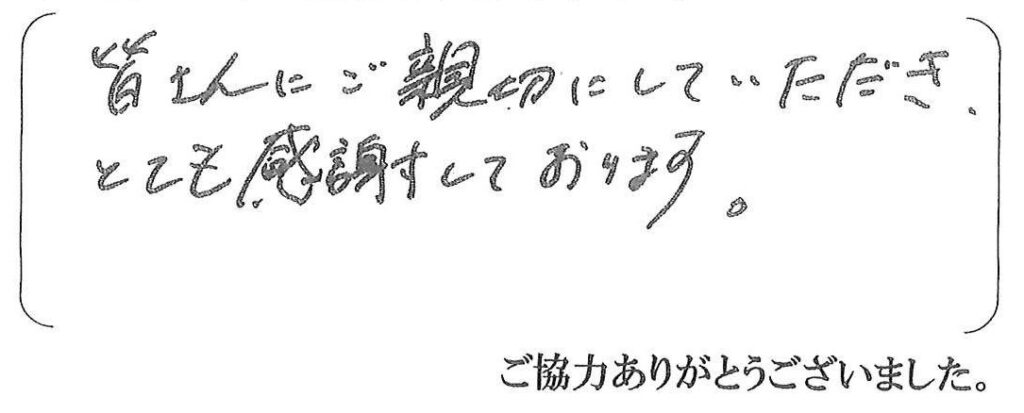 皆さんにご親切にしていただき、
とても感謝しております。
ご協力ありがとうございました。